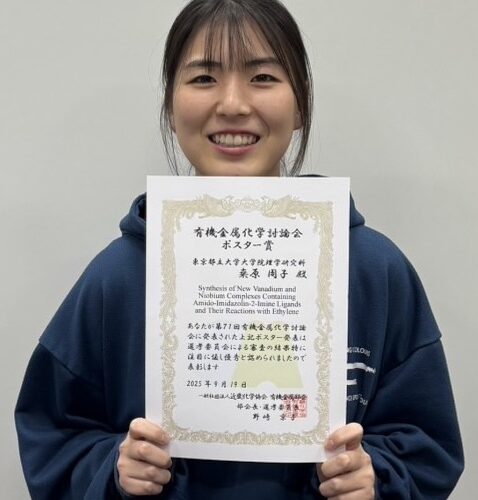 有機金属化学討論会
ポスター賞
東京都立大学大学院理学研究科
桑原 周子 殿
Synthesis of New Vanadium and
Niobium Complexes Containing
Amido-Imidazolin-2-Imine Ligands
and Their Reactions with Ethylene
あなたが第71回有機金属化学討論
会に発表された上記ポスター発表は
選考委員会による審査の結果特に
注目に議し優秀と認められましたので
表彰します
2025年9月19日
一般社団法人近畿化学協会 有機金属部会
部会長・選考委員長
野崎 京子